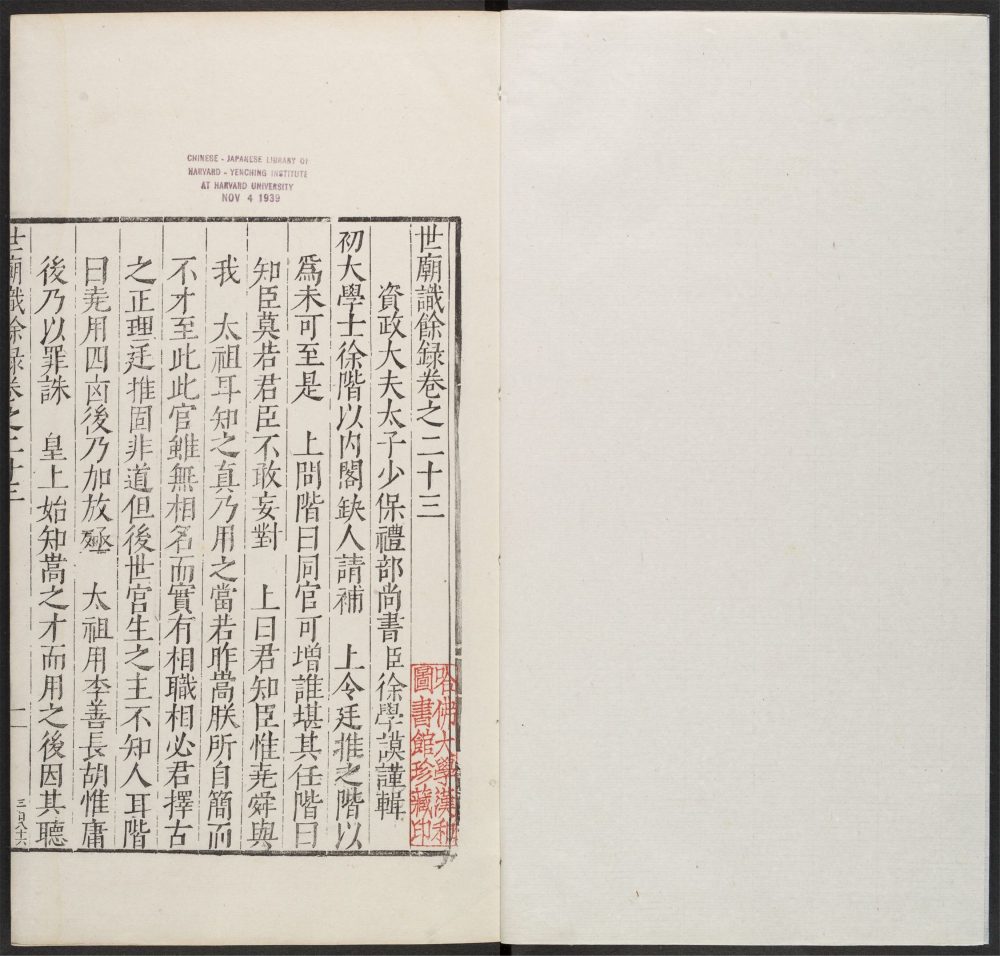 CHINESE - JAPANESE LIBRARY OF
HARVARD - YENCHING INSTITUTE
AT HARVARD UNIVERSITY
NOV 4 1939
世廟識餘録卷之二十三
資政大夫太子少保禮部尚書臣徐學謨謹輯
初大學士徐階以内閣缺人請補　上令廷推之階以
爲未可至是　上問階曰同官可增誰堪其任階曰
知臣莫若君臣不敢妄對　上曰君知臣惟堯舜與
我　太祖耳知之真乃用之當若昨嵩朕所自簡而
不才至此此官雖無相名而實有相職相必君擇古
之正理廷推固非道但後世宫生之主不知人耳階
曰堯用四凶後乃加放殛　太祖用李善長胡惟庸
後乃以罪誅　皇上始知嵩之才而用之後因其聽
世廟識餘録卷之二十三
一
三百八十六
哈佛大學漢和
圖書館珍藏印